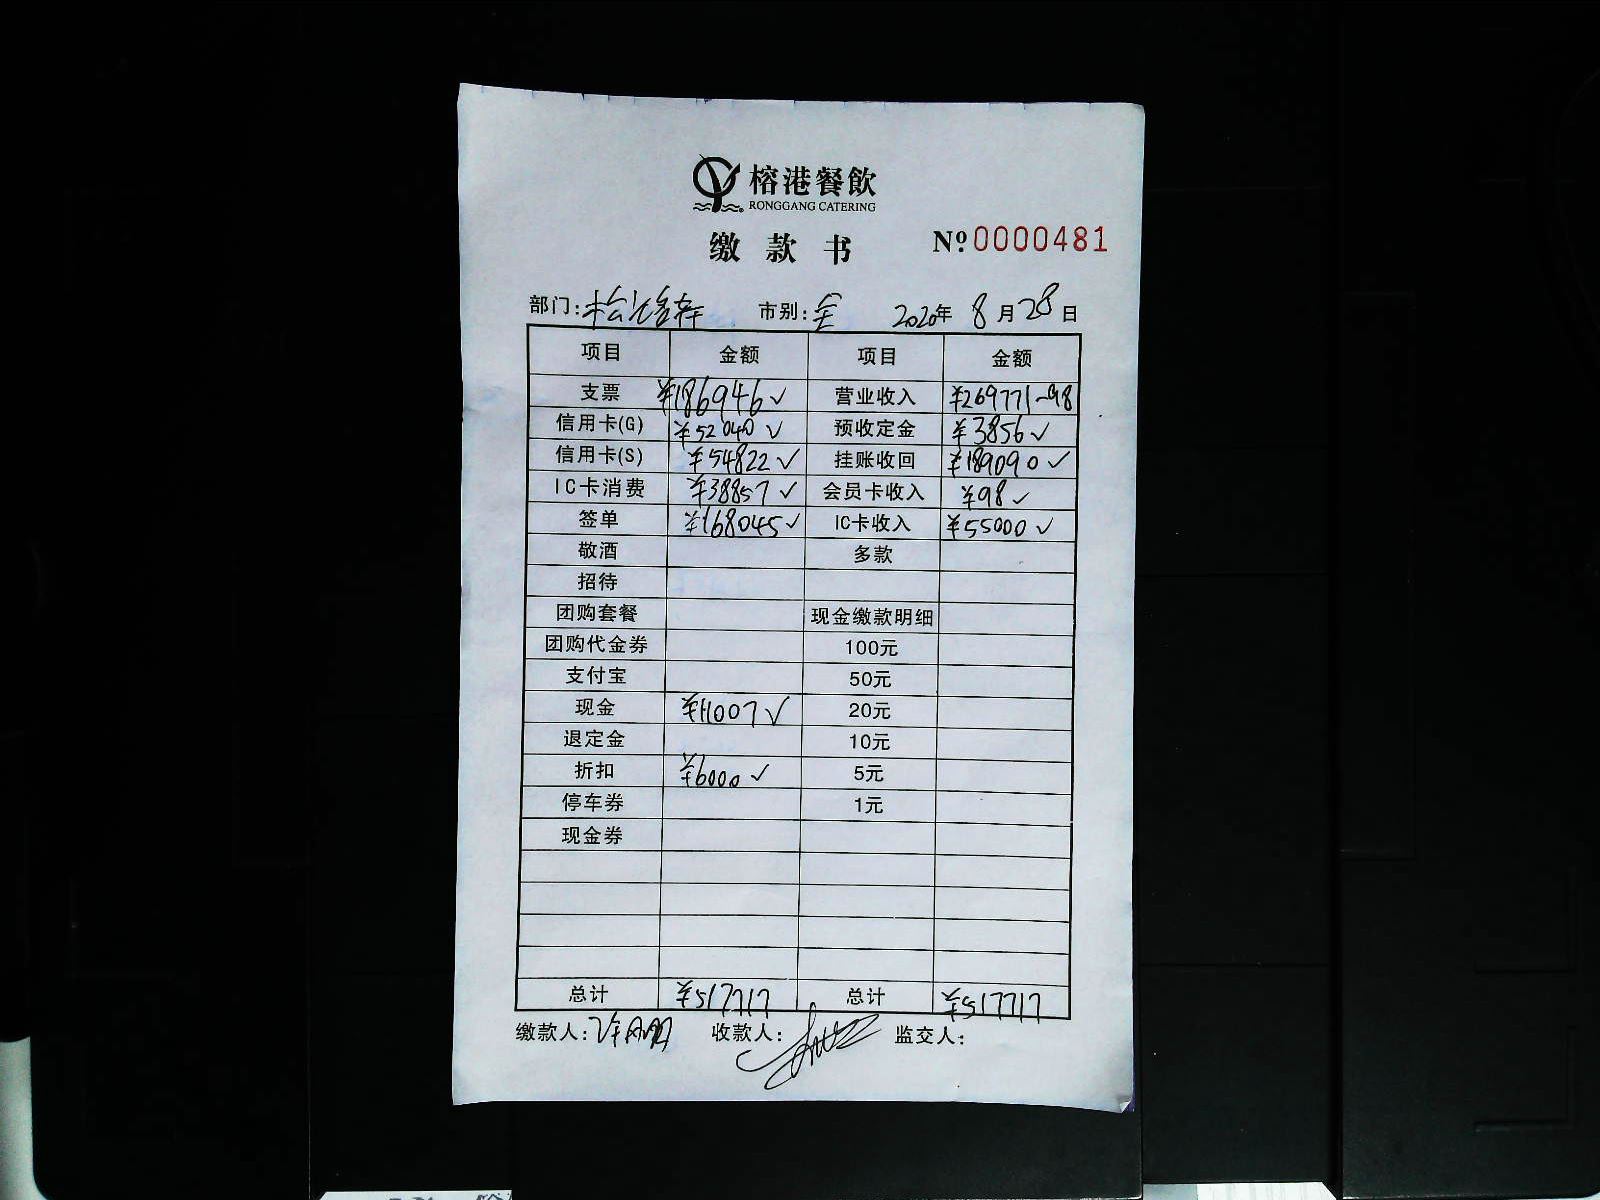 榕港餐飲
RONGGANG CATERING
缴款书 №0000481
部门: 市别:全 2020年 8月28日
项目 金额 项目 金额
支票 ¥186946✓ 营业收入 ¥269771-98
信用卡(G) ¥52040✓ 预收定金 ¥3856✓
信用卡(S) ¥54822✓ 挂账收回 ¥189090✓
IC卡消费 ¥38857✓ 会员卡收入 ¥98✓
签单 ¥168045✓ IC卡收入 ¥55000✓
敬酒 多款
招待
团购套餐 现金缴款明细
团购代金券 100元
支付宝 50元
现金 ¥11007✓ 20元
退定金 10元
折扣 ¥6000✓ 5元
停车券 1元
现金券
总计 ¥517717 总计 ¥517717
缴款人: 收款人: 监交人: